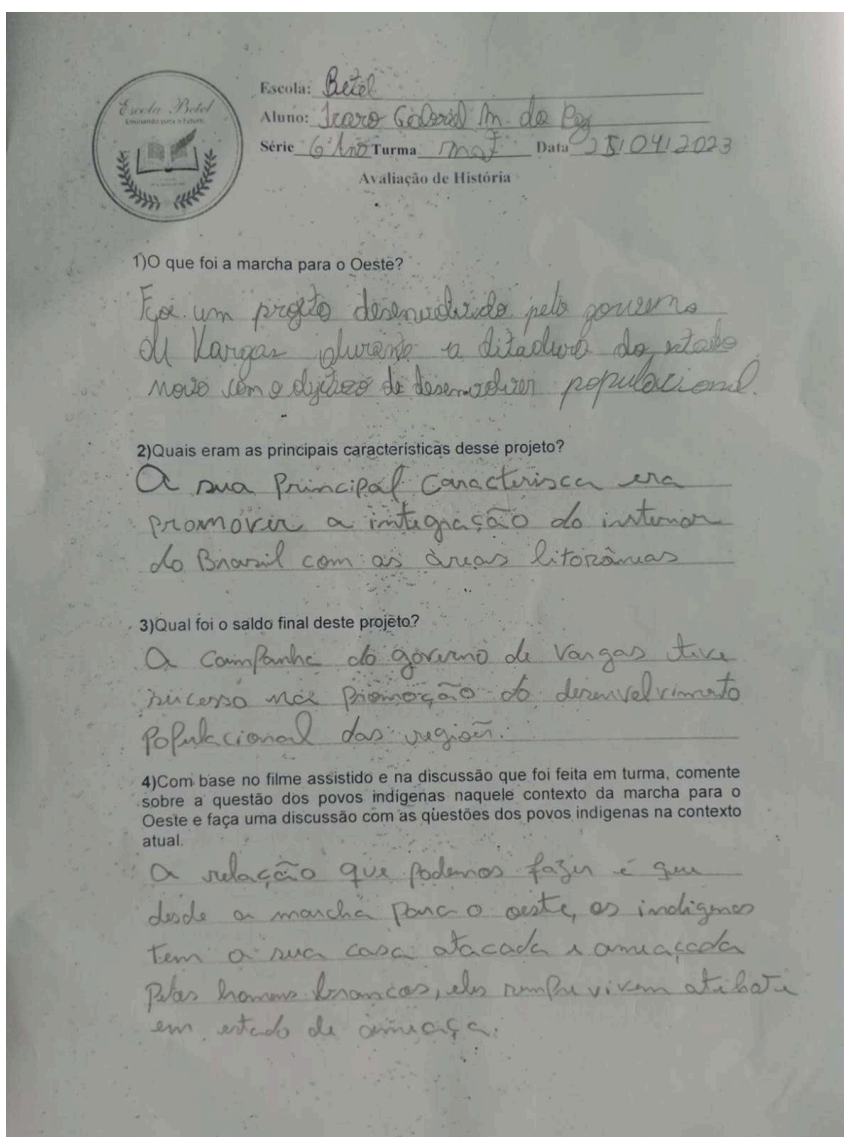 Escola Betel
Ensinando para o futuro.
Escola: Betel
Aluno: Icaro Gabriel M. da Paz
Série 6º Ano Turma Mat Data 25/04/2023
Avaliação de História
1)O que foi a marcha para o Oeste?
Foi um projeto desenvolvido pelo governo
de Vargas durante a ditadura do estado
novo com o objetivo de desenvolver populacional.
2)Quais eram as principais características desse projeto?
A sua Principal Caracterisca era
promover a integração do interior
do Brasil com as áreas litorâneas
3)Qual foi o saldo final deste projeto?
A Campanha do governo de Vargas teve
sucesso na promoção do desenvolvimento
Populacional das região.
4)Com base no filme assistido e na discussão que foi feita em turma, comente
sobre a questão dos povos indígenas naquele contexto da marcha para o
Oeste e faça uma discussão com as questões dos povos indígenas na contexto
atual.
A relação que podemos fazer é que
desde a marcha para o oeste, os indigenas
tem a sua casa atacada e ameaçada
pelos homens brancos, eles sempre vivem
em estado de ameaça.